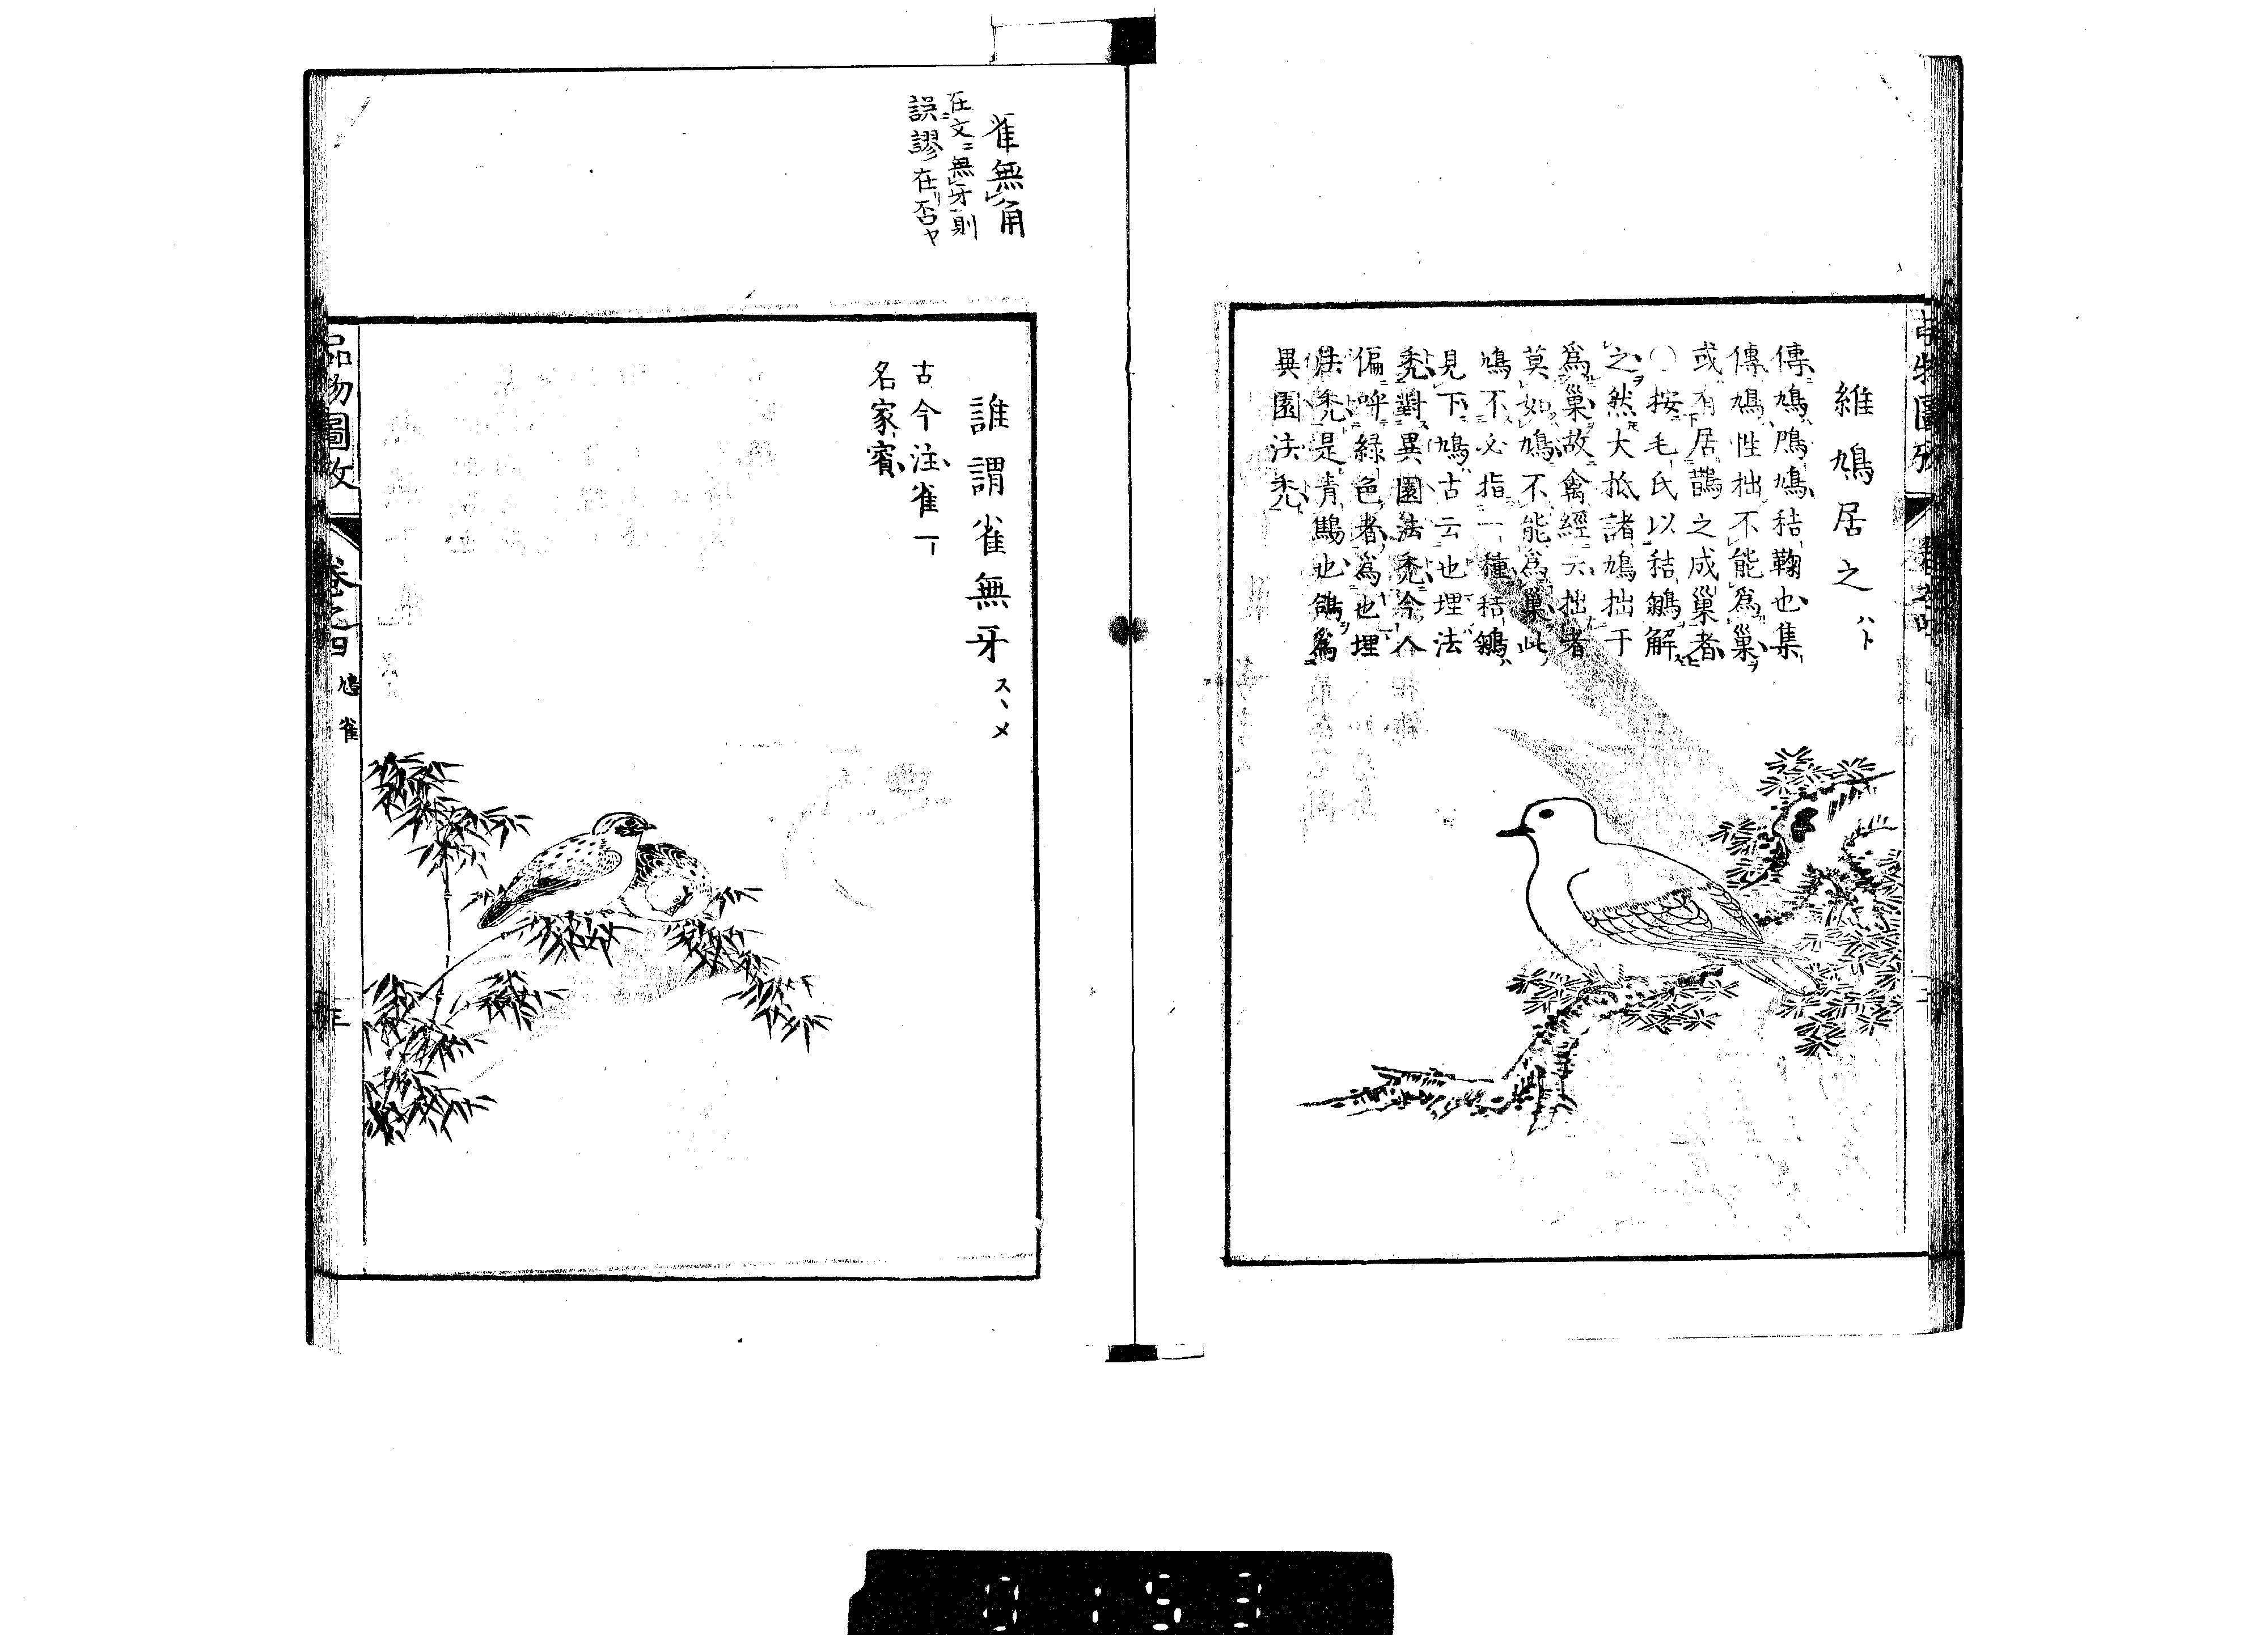 維鳩居之 ハト
傳鳩鳲鳩秸鞠也集
傳鳩性拙不能爲巢
或有居鵲之成巢者
〇按毛氏以秸鶵解
之然大抵諸鳩拙于
爲巢故禽經云拙者
莫如鳩不能爲巢此
鳩不必指一種秸鶵
見下鳩古云也埋法
禿對異園法禿今人
偏呼綠色者爲也埋
法禿是青鷦也鴿爲
異園法禿
雀無角
在文ニ無牙則
誤謬在否ヤ
誰謂雀無牙 スヽメ
古今注雀一
名家賓
品物圖攷 卷之四 鳩 雀
0153